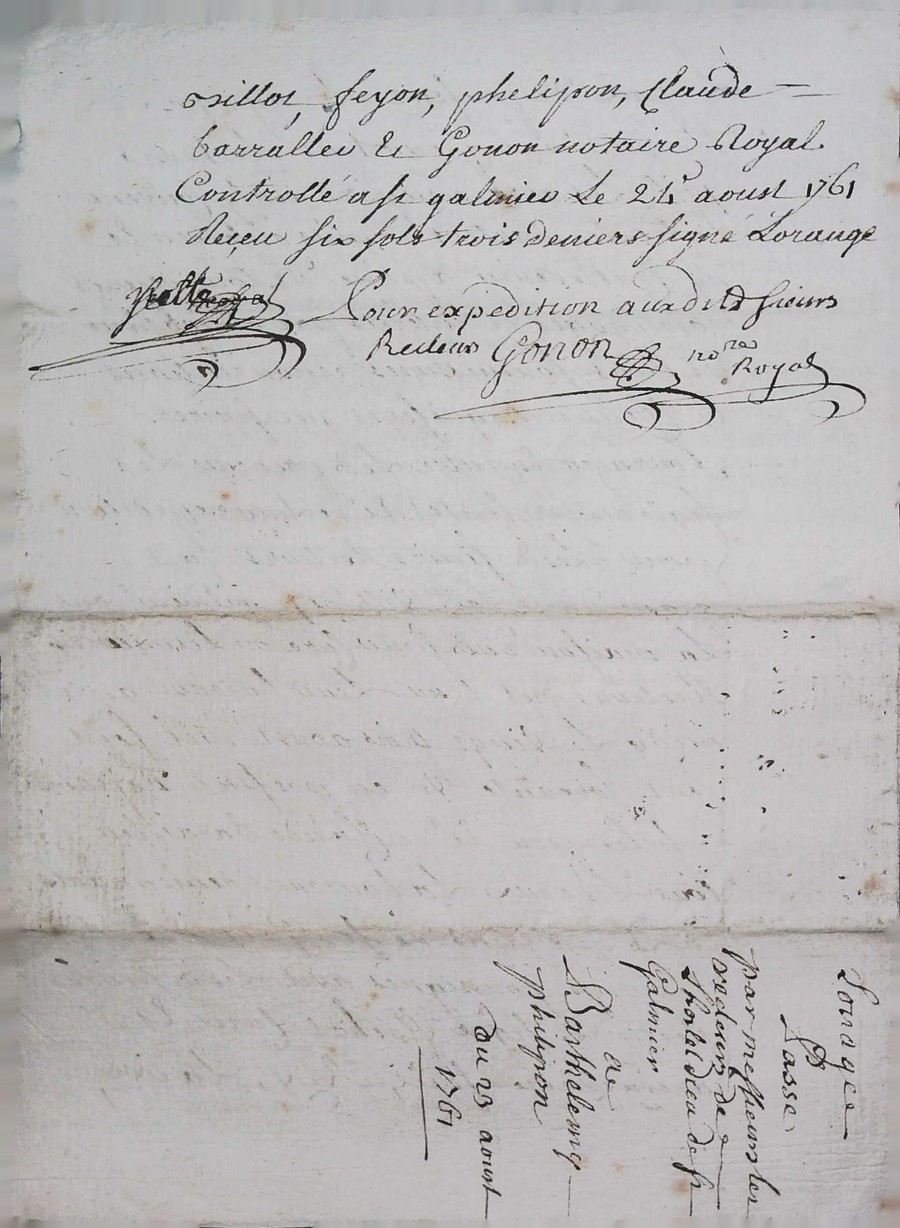 villot, feyon, phelipon, Claude
barrallier & Gonon notaire Royal.
Controllé a st galmier Le 24 aoust 1761
Receu six sols trois deniers signé Lorange
Pour expedition auxdits sieurs
Recteurs Gonon nore
Royal
Louage
Passé
par messieurs les
recteurs de
L'hotel dieu de st
Galmier
a
Barthelemy
philipon
du 23 aoust
1761